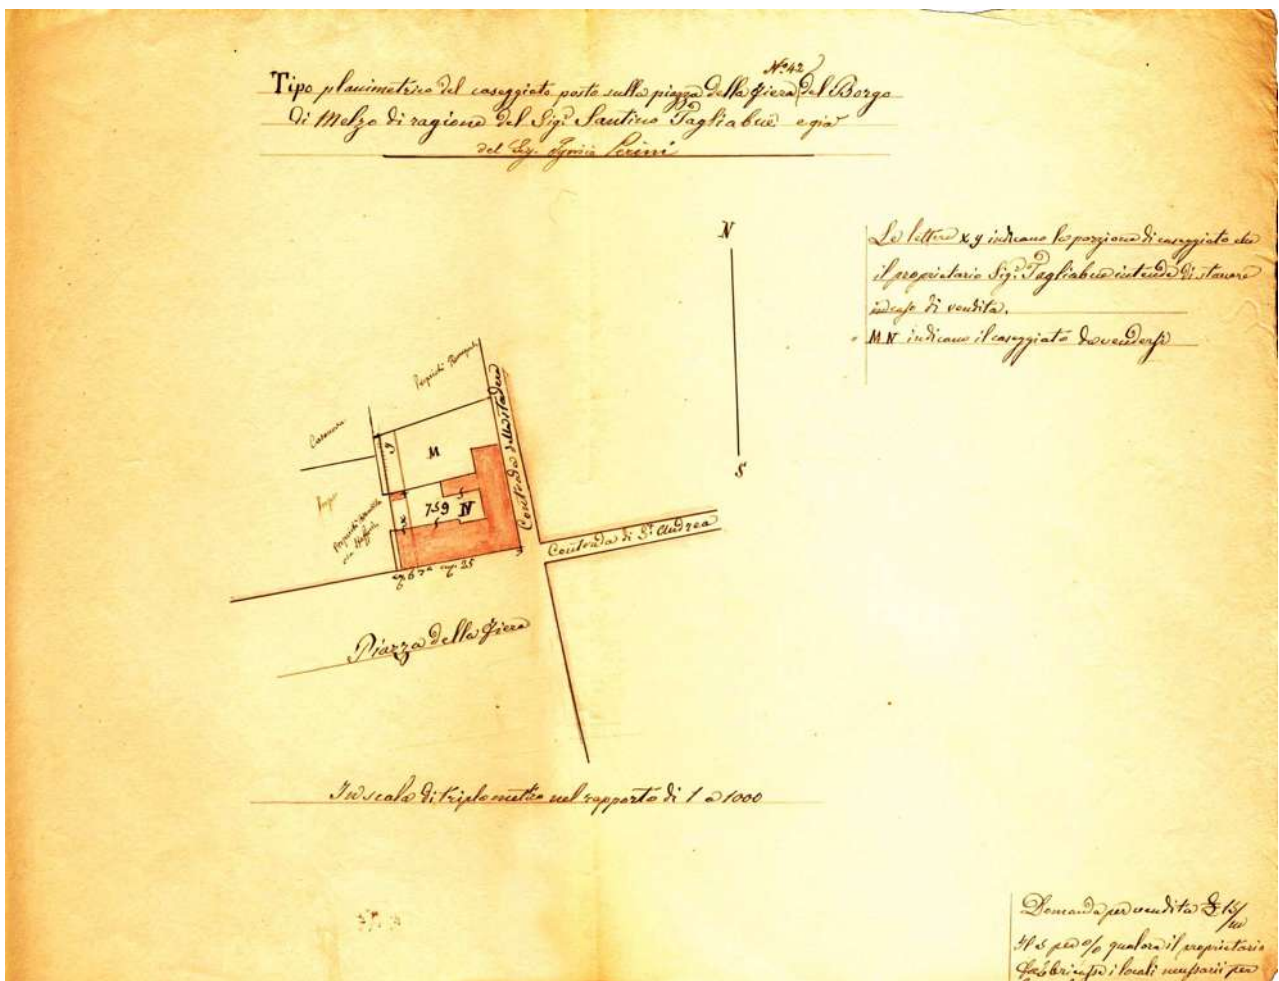 Nº 42
Tipo planimetrico del caseggiato posto sulla piazza della fiera del Borgo
di Melzo di ragione del Sigr Santino Tagliabue e già
del Perini
N
S
Le lettere x y indicano la porzione di caseggiato che
il proprietario Sigr Tagliabue intende di
in caso di vendita.
M N indicano il caseggiato da vendersi
Contrada della stadera
Casanova
y
M
759 N
x
Contrada di St Andrea
Piazza della fiera
In scala di triplometro nel rapporto di 1 a 1000
Domanda per vendita
Il 5 per % qualora il proprietario
i locali necessarii per